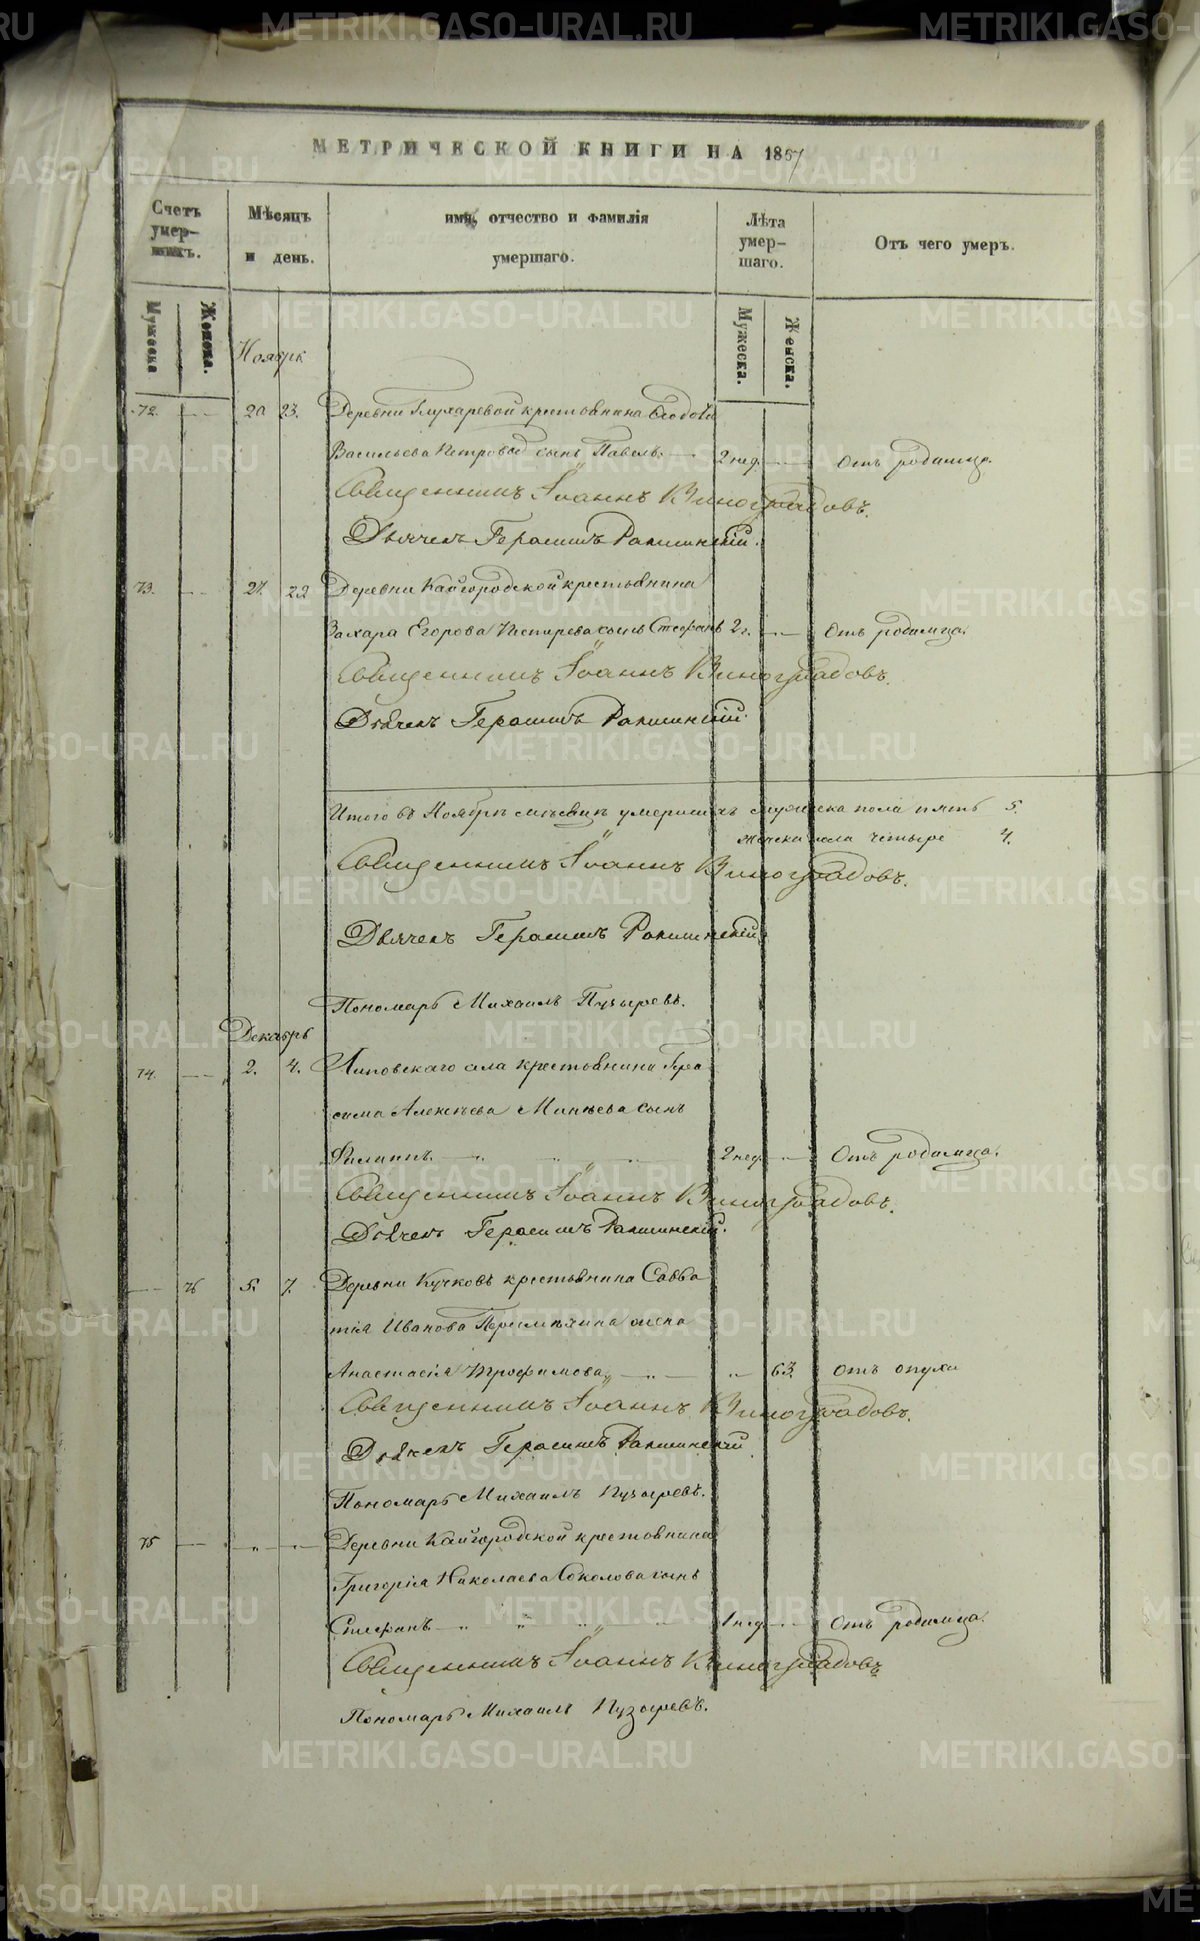 МЕТРИЧЕСКОЙ КНИГИ НА 1867
Счетъ умер-шихъ.
Мѣсяцъ и день.
имя, отчество и фамилія умершаго.
Лѣта умер-шаго.
Отъ чего умеръ.
Мужеска.
Женска.
Мужеска.
Женска.
Ноябрь
72. — 20 23. Деревни Глухаревой крестьянина Ѳеодота
Васильева Петрова сынъ Павелъ. — 2 нед. — Отъ родимца.
Священникъ Іоаннъ Виноградовъ.
Дьячекъ Герасимъ Ракшинскій.
73. — 27. 22 Деревни Кайгородской крестьянина
Захара Егорова сынъ Стефанъ 2 г. — Отъ родимца.
Священникъ Іоаннъ Виноградовъ.
Дьячекъ Герасимъ Ракшинскій.
Итого въ Ноябрѣ мѣсяцѣ умершихъ мужеска пола пять 5.
женска пола четыре 4.
Священникъ Іоаннъ Виноградовъ.
Дьячекъ Герасимъ Ракшинскій.
Пономарь Михаилъ Пузыревъ.
Декабрь
74. — 2. 4. Липовскаго села крестьянина Гера
сима Алексѣева Минѣева сынъ
Филиппъ. — 2 нед. — Отъ родимца.
Священникъ Іоаннъ Виноградовъ.
Дьячекъ Герасимъ Ракшинскій.
— 76 5. 7. Деревни Кучковъ крестьянина Савва
тія Иванова жена
Анастасія Трофимова — 63. Отъ опухи
Священникъ Іоаннъ Виноградовъ.
Дьячекъ Герасимъ Ракшинскій
Пономарь Михаилъ Пузыревъ.
75 — Деревни Кайгородской крестьянина
Григорія Николаева Соколова сынъ
Стефанъ — 1 нед. — Отъ родимца.
Священникъ Іоаннъ Виноградовъ
Пономарь Михаилъ Пузыревъ.
METRIKI.GASO-URAL.RU